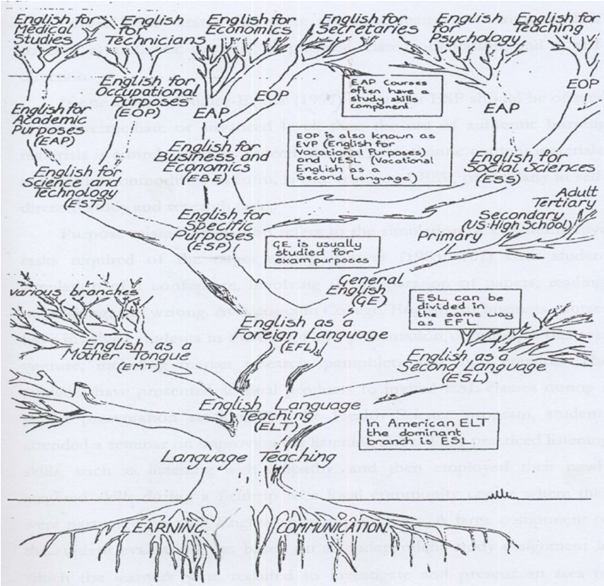 English for
Medical
Studies
English
for
Technicians
English for
Economics
English for
Secretaries
English
for
Psychology
English for
Teaching
English for
Occupational
Purposes
(EOP)
EAP
EOP
EAP Courses
often have a
study skills
component
EAP
EOP
English for
Academic
Purposes
(EAP)
English for
Business and
Economics
(EBE)
EOP is also known as
EVP (English for
Vocational Purposes)
and VESL (Vocational
English as a
Second Language)
English for
Social Sciences
(ESS)
English for
Science and
Technology
(EST)
English for
Specific
Purposes
(ESP)
GE is usually
studied for
exam purposes
Adult
Tertiary
Secondary
(US:High School)
Primary
General
English
(GE)
various branches
English as a
Foreign Language
(EFL)
ESL can be
divided in
the same way
as EFL
English as a
Mother Tongue
(EMT)
English as a
Second Language
(ESL)
English Language
Teaching
(ELT)
In American ELT
the dominant
branch is ESL
Language Teaching
LEARNING
COMMUNICATION